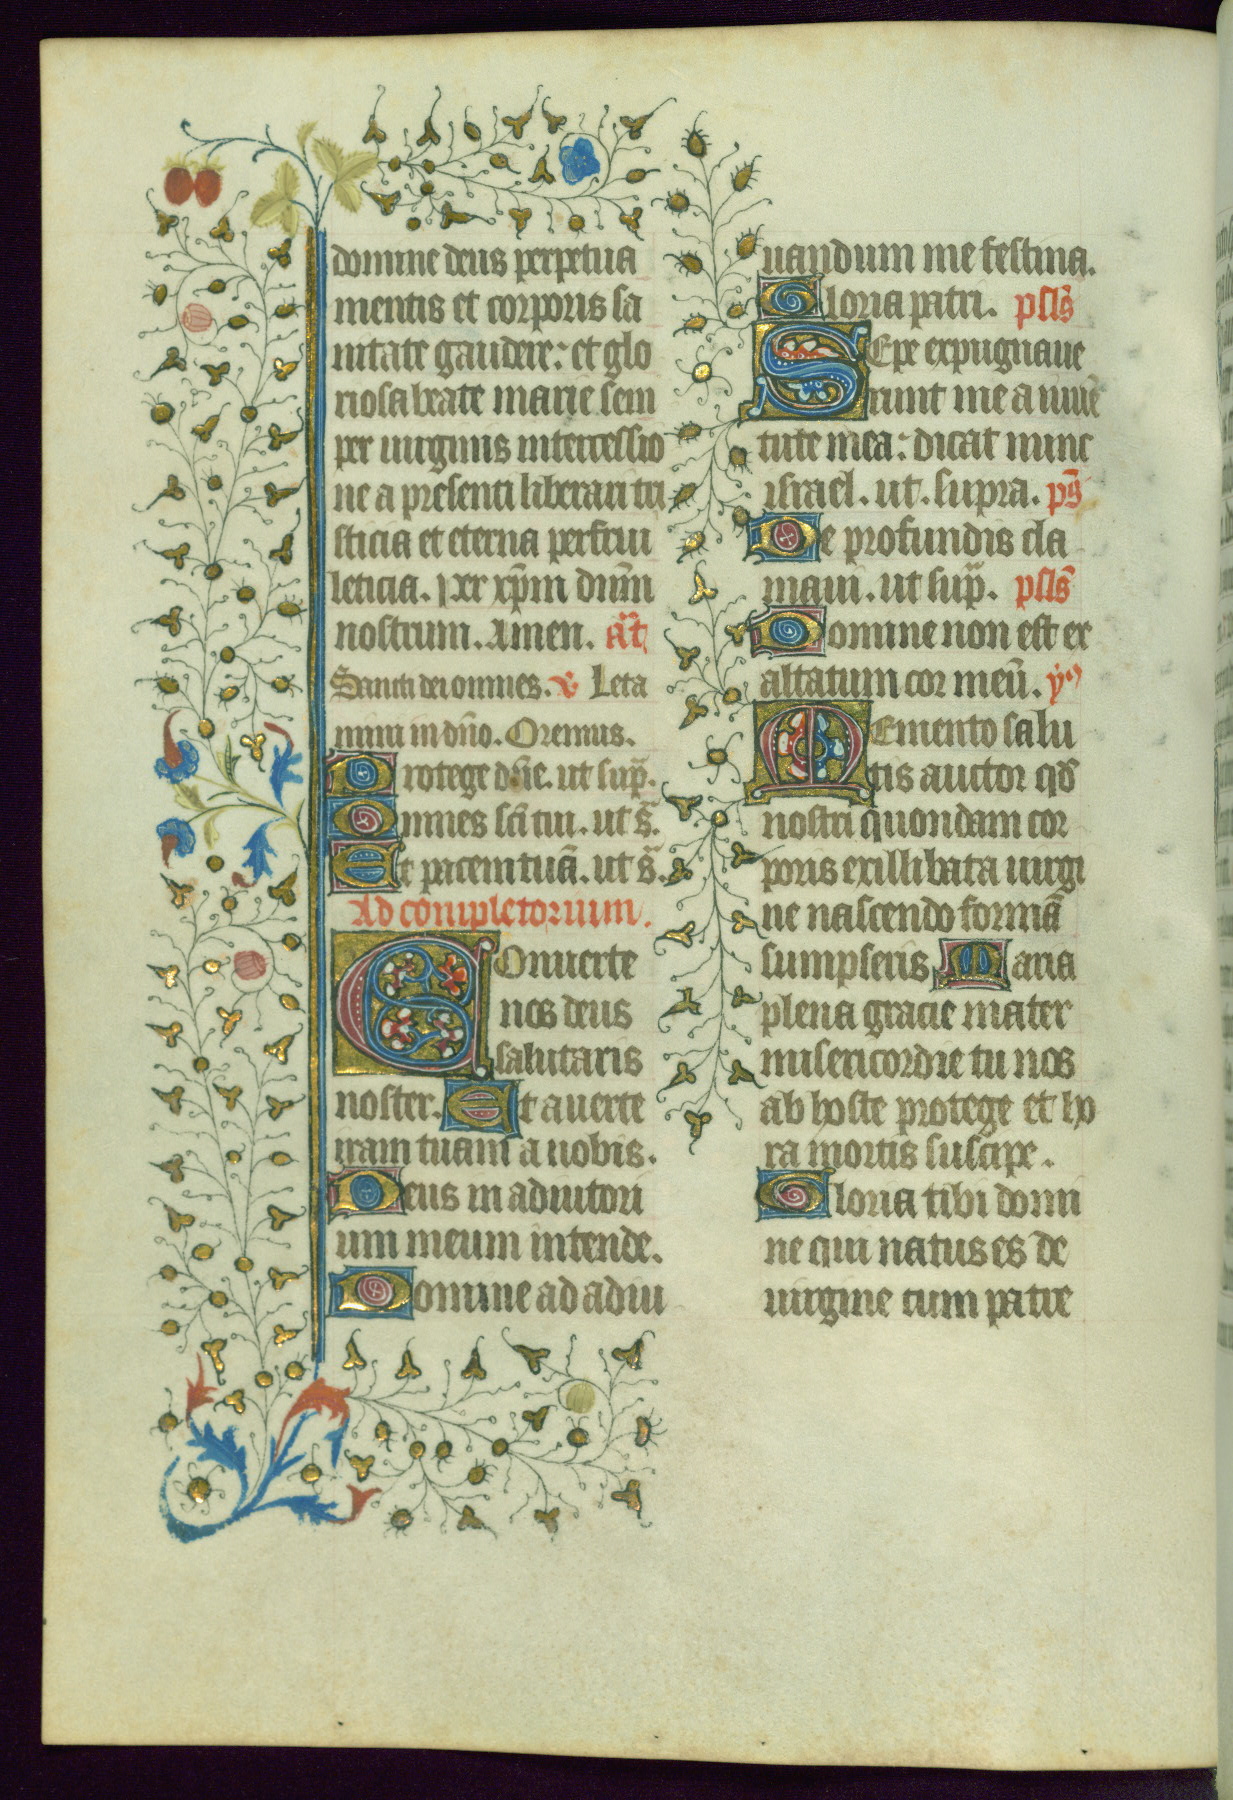 domine deus perpetua
mentis et corporis sa
nitate gaudere: et glo
riosa beate marie sem
per uirginis intercessio
ne a presenti liberari tri
sticia et eterna perfrui
leticia. per xp̄m dn̄m
nostrum. Amen. an̄t
Sancti dei omnes. v Leta
mini in dn̄o. Oremus.
Protege dn̄e. ut sup̄.
Omnes sc̄i tui. ut s̄.
Et pacem tuā. ut s̄.
Ad completorium.
COnuerte
nos deus
salutaris
noster. Et auerte
iram tuam a nobis.
Deus in adiutori
um meum intende.
Domine ad adiu
uandum me festina.
Gloria patri. psl̄s
SEpe expugnaue
runt me a iuuē
tute mea: dicat nunc
israel. ut. supra. ps̄
De profundis cla
maui. ut sup̄. psl̄s
Domine non est ex
altatum cor meū. yᵒ
MEmento salu
tis auctor qd̄
nostri quondam cor
poris ex illibata uirgi
ne nascendo formā
sumpseris Maria
plena gracie mater
misericordie tu nos
ab hoste protege et ho
ra mortis suscipe.
Gloria tibi domi
ne qui natus es de
uirgine cum patre